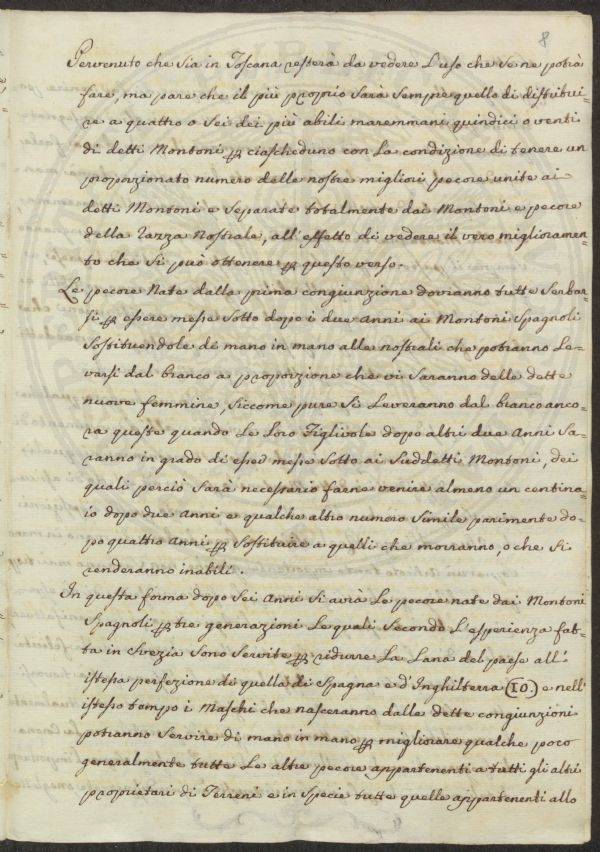 8
Pervenuto che Sia in Toscana resterà da vedere L'uso che Se ne potrà
fare, ma pare che il più proprio Sarà Sempre quello di distribui-
re a quattro o Sei dei più abili maremmani quindici o venti
di detti Montoni p ciascheduno con La condizione di tenere un
proporzionato numero delle nostre migliori pecore unite ai
detti Montoni e Separate totalmente dai Montoni e pecore
della razza Nostrale, all'effetto di vedere il vero miglioramen-
to che Si può ottenere p questo verso.
Le pecore Nate dalla prima congiunzione dovranno tutte Serbar-
si p essere messe Sotto dopo i due Anni ai Montoni Spagnoli
Sostituendole di mano in mano alle nostrali che potranno Le-
varsi dal branco a proporzione che vi Saranno delle dette
nuove femmine, Siccome pure Si Leveranno dal branco anco-
ra queste quando Le Loro Figliuole dopo altri due Anni Sa-
ranno in grado di messe Sotto ai Suddetti Montoni, dei
quali perciò Sarà necessario farne venire almeno un centina-
io dopo due Anni e qualche altro numero Simile parimente do-
po quattro Anni p Sostituire a quelli che morranno, o che Si
renderanno inabili.
In questa forma dopo Sei Anni Si avrà Le pecore nate dai Montoni
Spagnoli p tre generazioni Le quali Secondo L'esperienza fat-
ta in Svezia Sono Servite p ridurre La Lana del paese all'
istessa perfezione di quella di Spagna e d'Inghilterra (10.) e nell'
istesso tempo i Maschi che nasceranno dalle dette congiunzioni
potranno Servire di mano in mano p migliorare qualche poco
generalmente tutte Le altre pecore appartenenti a tutti gli altri
proprietari di Terreni e in Specie tutte quelle appartenenti allo